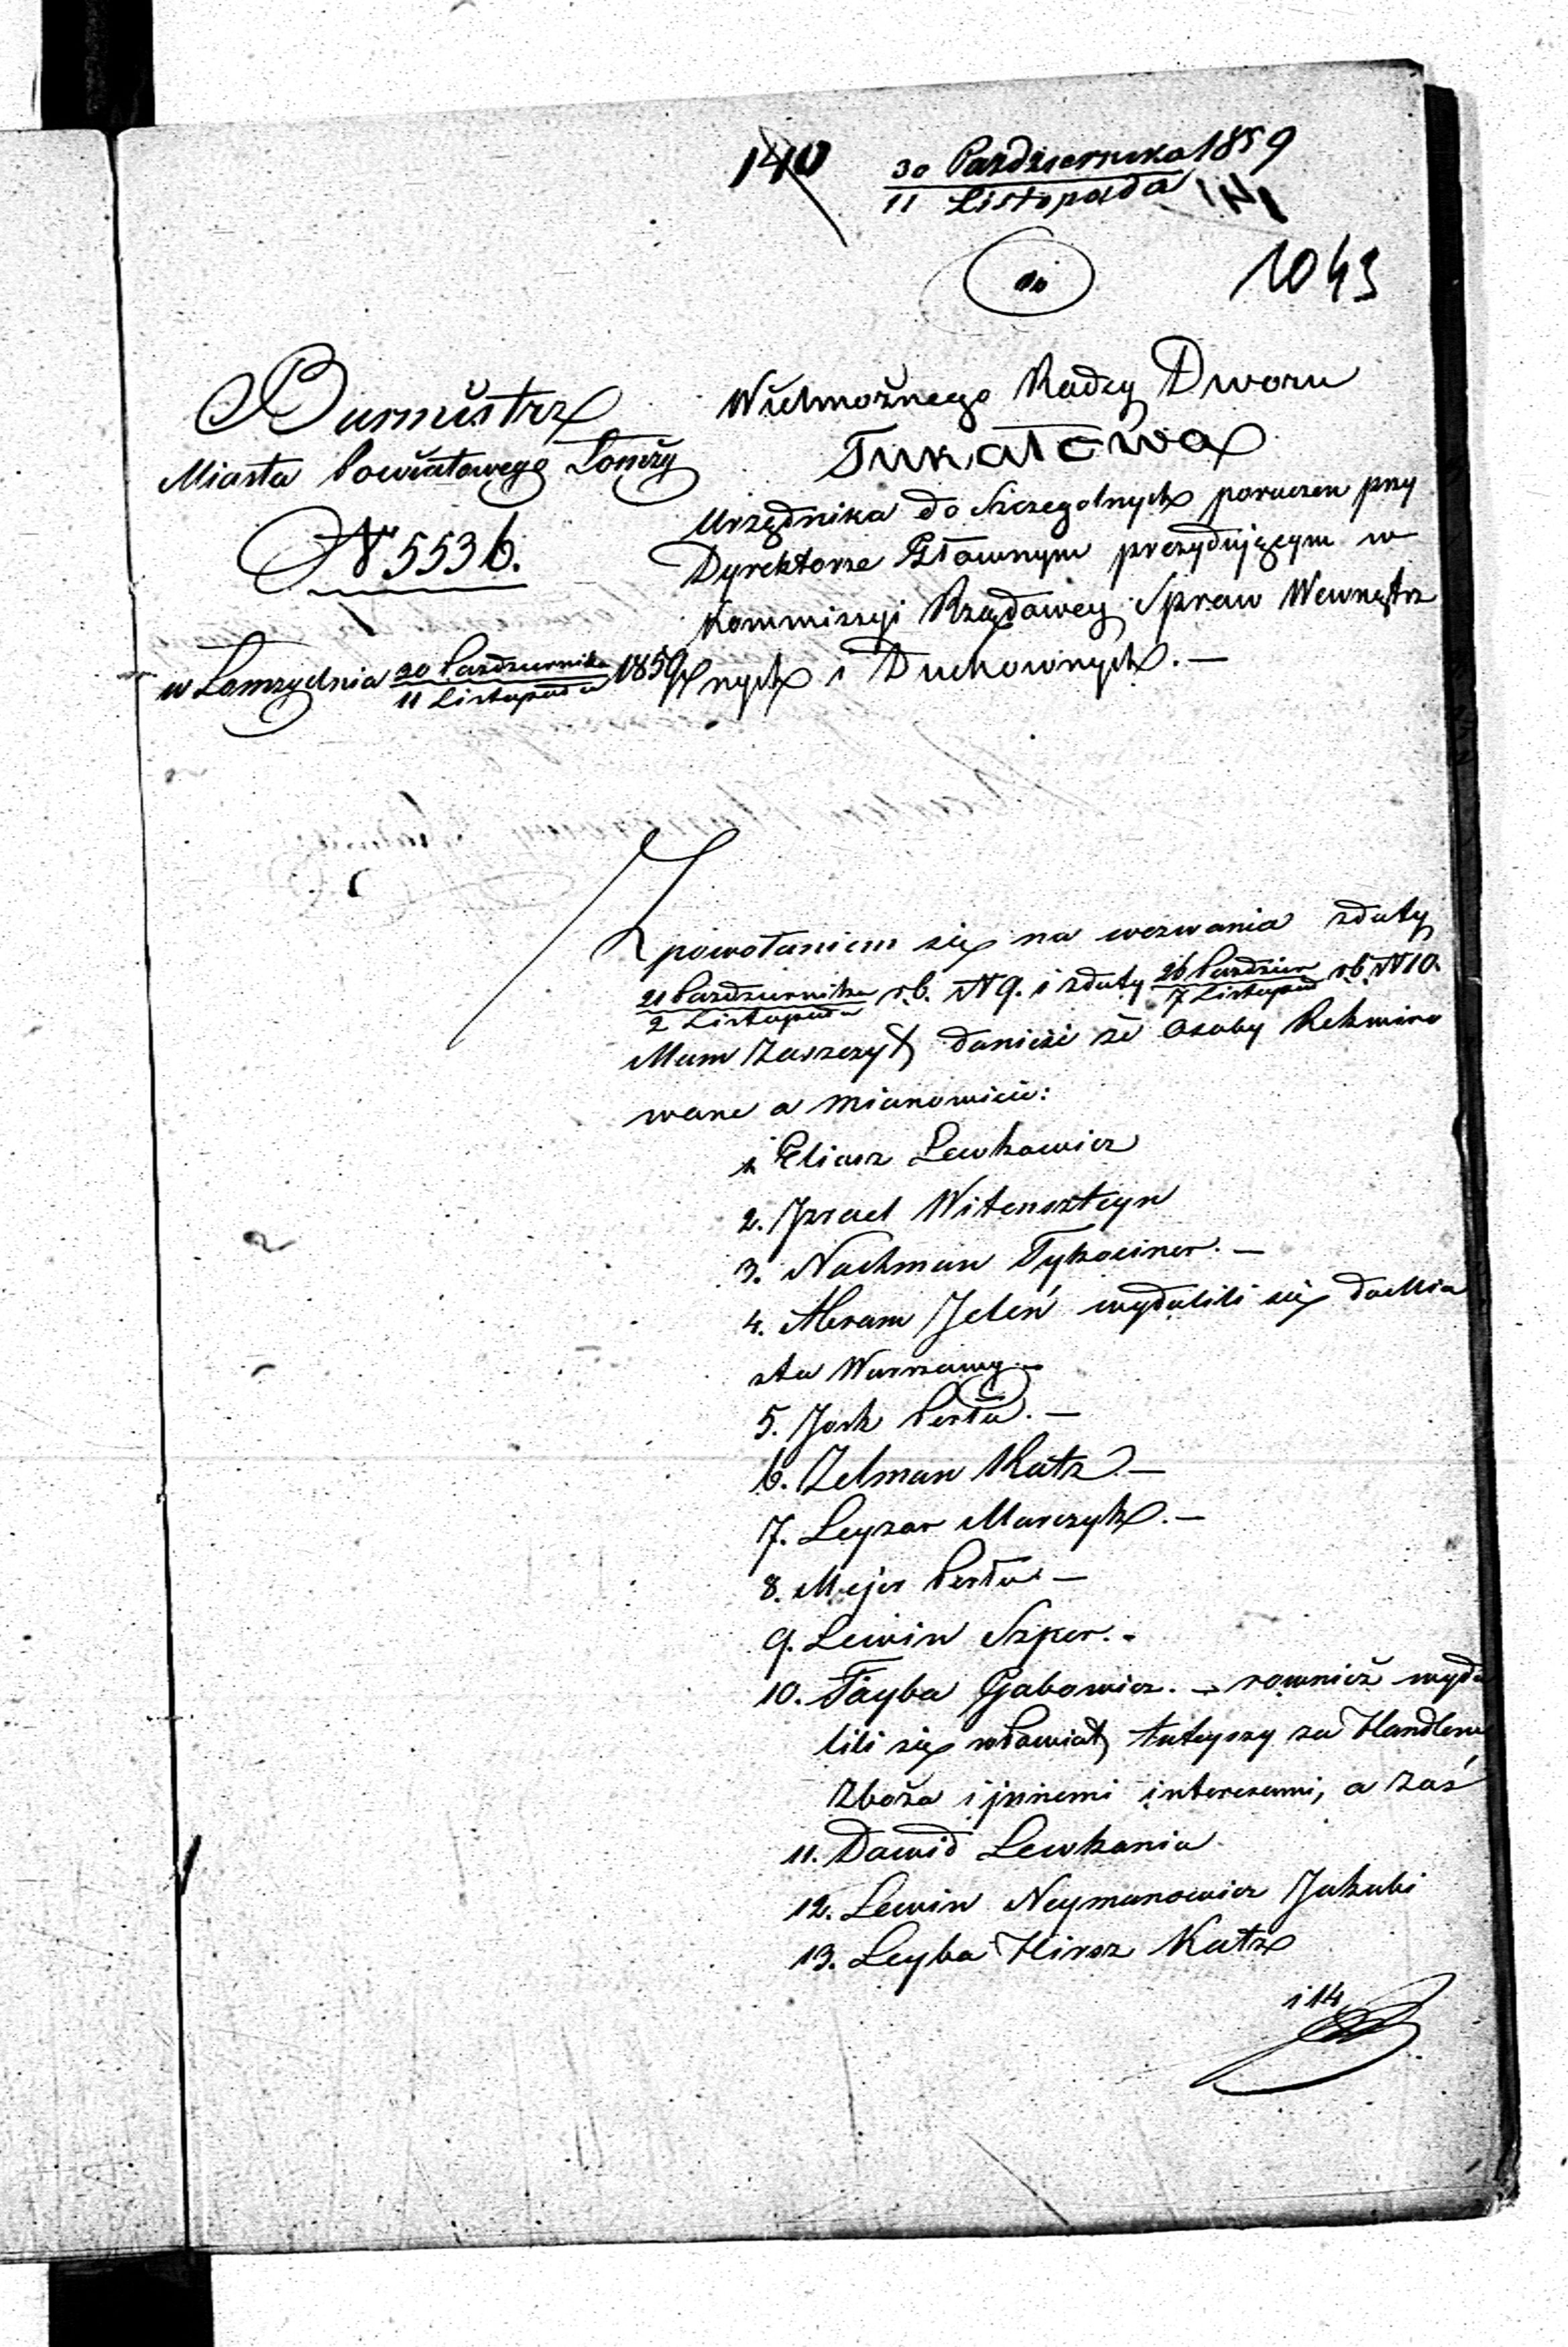 140
30 Października 1859
11 Listopada
141
10
1043
Burmistrz
Miasta Powiatowego Łomży
N 5536.
w Łomzy dnia 30 Pazdziernika 1859 r
11 Listopada
Wielmożnego Radzy Dworu
Tukałowa
Urzędnika do Szczegolnych poruczen przy
Dyrektorze Głównym prezydującym w
Kommissyi Rządowey Spraw Wewnętrz
nych i Duchownych. —
Z powołaniem się na wezwania z daty
21 Pazdziernika r.b. N 9. i z daty 26 Pazdzier r.b. N 10.
2 Listopada 7 Listopad
Mam Zaszczyt donieść że Osoby Rekwiro
wane a mianowicie:
1. Eliasz Lewkowicz
2. Jzrael Witenszteyn
3. Nachman Tykociner. —
4. Abram Jeleń wydalili się do Mia
sta Warszawy. —
5. Josk Perła. —
6. Zelman Katz. —
7. Leyzor Marczyk. —
8. Mejer Perła. —
9. Lewin Szper. -
10. Fayba Gabowicz. — rownież wyda
lili się w Powiat tuteyszy za Handlem
Zboża i jnnemi interesami, a zaś
11. Dawid Lewkonia
12. Lewin Neymanowicz Jakubi
13. Leyba Hirsz Katz
i 14